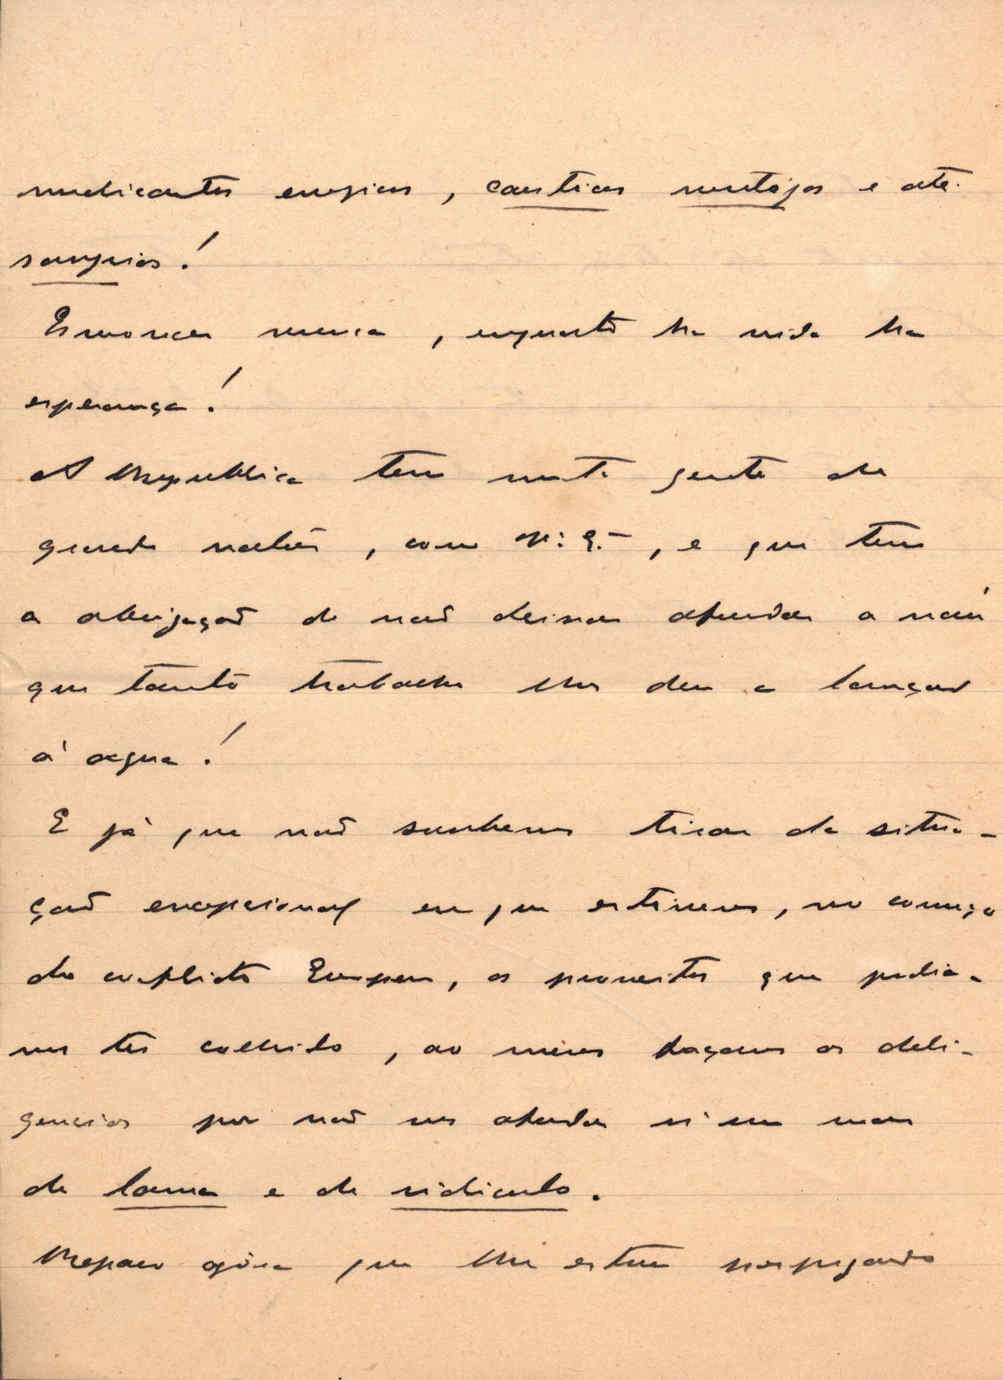 medicantes energicos, causticos ventosas e até
sangrias!
Esmorecer nunca, enquanto ha vida ha
esperança!
A Republica tem muita gente de
grande valôr, como V. Ex.ª, e que tem
a obrigaçaõ de naõ deixar afundar a náu
que tanto trabalho lhes deu a lançar
á agua!
E já que naõ soubemos tirar da situa-
çaõ excepcional em que estivemos, no começo
do conflicto Europeu, os proveitos que podia-
mos ter colhido, ao menos façamos as deli-
gencias por naõ nos afundar n'um mar
de lama e de ridiculo.
Reparo agóra que lhe estou